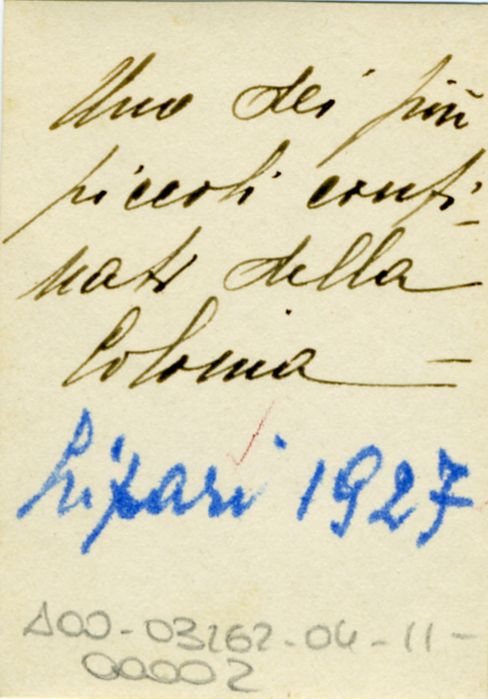 Uno dei più
piccoli confi-
nati della
Colonia -
Lipari 1927
A00-03262-04-11-
00002